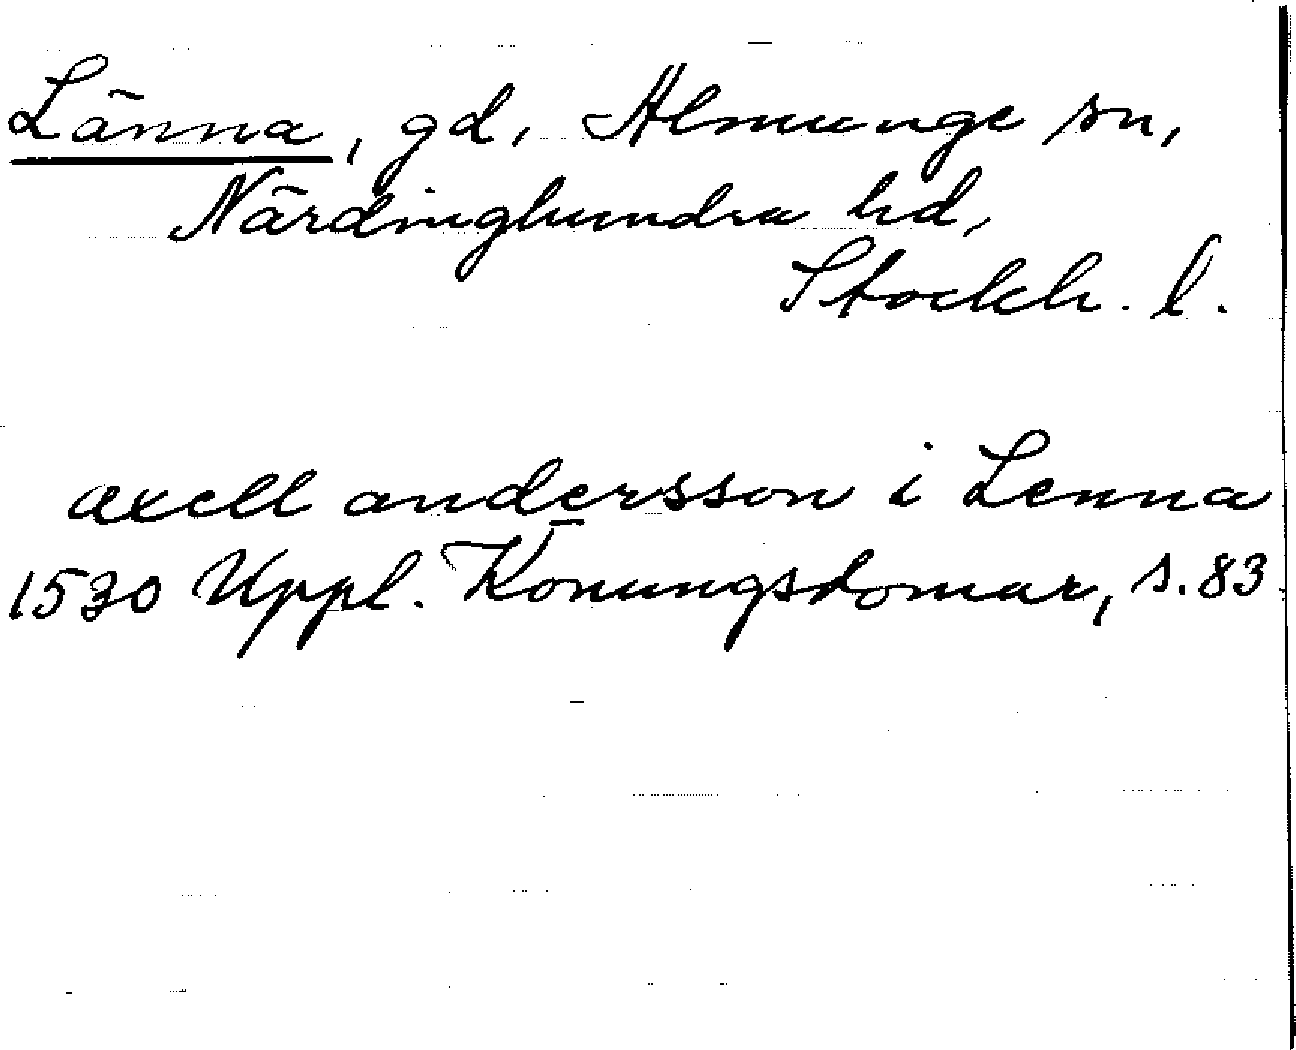 Länna, gd, Almunge sn,
Närdinghundra hd,
Stockh. l.
axell andersson i Lenna
1530 Uppl. Konungsdomar, s. 83